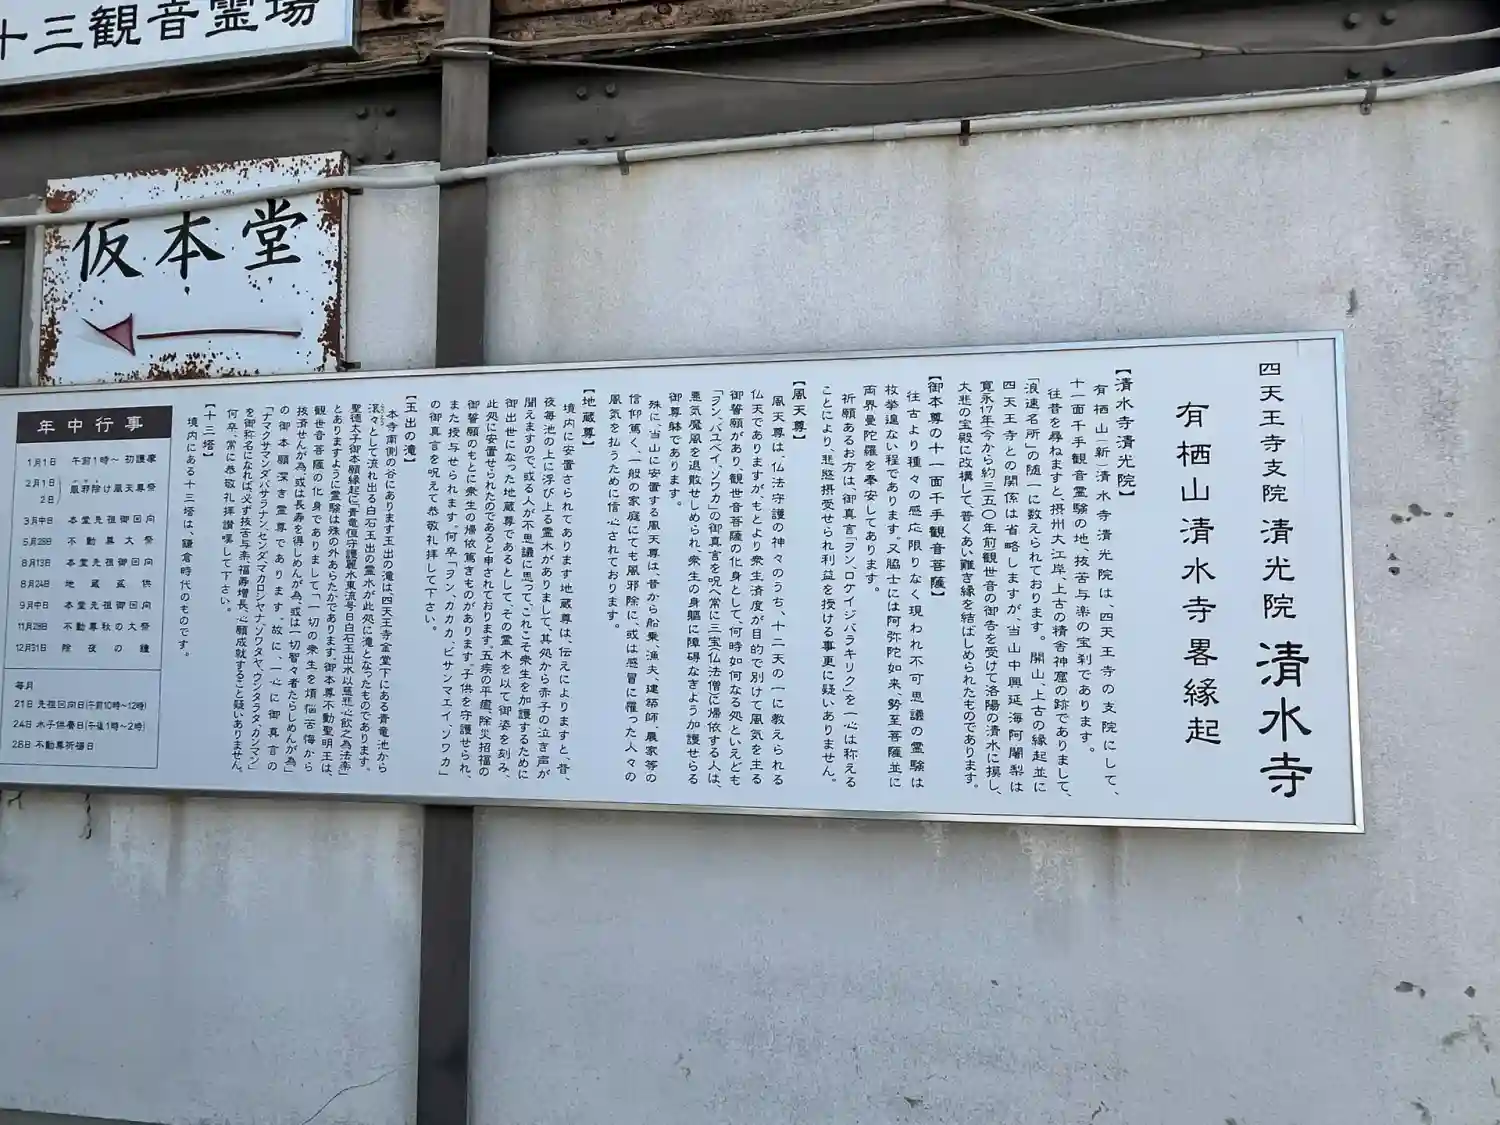 十三観音霊場
仮本堂
四天王寺支院 清光院 清水寺
有栖山清水寺畧縁起
【清水寺清光院】
有栖山(新)清水寺清光院は、四天王寺の支院にして、
十一面千手観音霊験の地、抜苦与楽の宝刹であります。
往昔を尋ねますと、摂州大江岸、上古の精舎神窟の跡でありまして、
「浪速名所」の随一に数えられております。開山、上古の縁起並に
四天王寺との関係は省略しますが、当山中興延海阿闍梨は
寛永17年今から約三五〇年前観世音の御告を受けて洛陽の清水に摸し、
大悲の宝殿に改構して、普くあい難き縁を結ばしめられたものであります。
【御本尊の十一面千手観音菩薩】
往古より種々の感応限りなく現われ不可思議の霊験は
枚挙遑ない程であります。又脇士には阿弥陀如来、勢至菩薩並に
両界曼陀羅を奉安してあります。
祈願あるお方は、御真言「ヲン、ロケイジバラキリク」を一心は称える
ことにより、悲愍摂受せられ利益を授ける事更に疑いありません。
【風天尊】
風天尊は、仏法守護の神々のうち、十二天の一に教えられる
仏天でありますが、もとより衆生済度が目的で別けて風気を主る
御誓願があり、観世音菩薩の化身として、何時如何なる処といえども
「ヲン、バユベイ、ソワカ」の御真言を呪へ常に三宝仏法僧に帰依する人は、
悪気魔風を退散せしめられ、衆生の身軀に障碍なきよう加護せらる
御尊躰であります。
殊に、当山に安置する風天尊は、昔から船乗、漁夫、建築師、農家等の
信仰篤く、一般の家庭にても風邪除に、或は感冒に罹った人々の
風気を払うために信心されております。
【地蔵尊】
境内に安置さられてあります地蔵尊は、伝えによりますと、昔、
夜毎池の上に浮び上る霊木がありまして、其処から赤子の泣き声が
聞えますので、或る人が不思議に思って、これこそ衆生を加護するために
御出世になった地蔵尊であるとして、その霊木を以て御姿を刻み、
此処に安置せられたのであると申されております。五疾の平癒、除災招福の
御誓願のもとに衆生の帰依篤きものがあります。子供を守護せられ、
また授与せられます。何卒「ヲン、カカカ、ビサンマエイ、ソワカ」
の御真言を呪えて恭敬礼拝して下さい。
【玉出の滝】
本寺南側の谷にあります玉出の滝は、四天王寺金堂下にある青竜池から
滾々として流れ出る白石玉出の霊水が此処に滝となったものであります。
聖徳太子御本願縁起に「青竜恒守護麗水東流号日白石玉出水以慈悲心飲之為法楽」
とありますように霊験は殊の外あらたかであります。御本尊不動聖明王は、
観世音菩薩の化身でありまして、「一切の衆生を煩悩苦悔から
抜済せんが為、或は長寿を得しめんが為、或は一切智々者たらしめんが為」
の御本願深き霊尊であります。故に、一心に御真言の
「ナマクサマンダ、バサラナン、センダ、マカロシヤナ、ソワタヤ、ウンタラタ、カンマン」
を御称名になれば、必ず抜苦与楽、福寿増長、心願成就すること疑いありません。
何卒、常に恭敬礼拝讃嘆して下さい。
【十三塔】
境内にある十三塔は、鎌倉時代のものです。
年中行事
1月1日 午前1時〜 初護摩
2月1日
2日 風邪除け風天尊祭
3月中日 本堂先祖御回向
5月28日 不動尊大祭
8月13日 本堂先祖御回向
8月24日 地蔵盆供
9月中日 本堂先祖御回向
11月28日 不動尊秋の大祭
12月31日 除夜の鐘
毎月
21日 先祖回向日(午前10時〜12時)
24日 水子供養日(午後1時〜2時)
28日 不動尊祈禱日